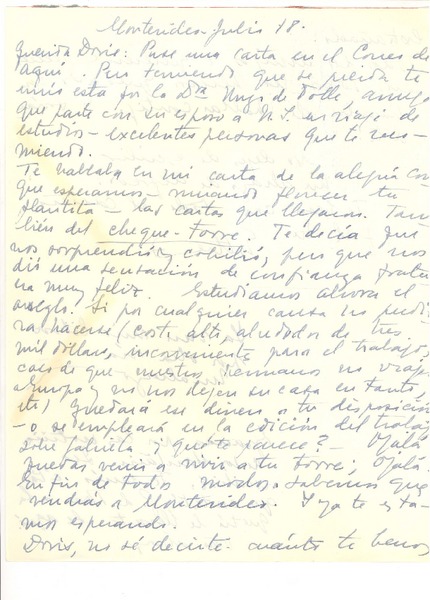 Montevideo Julio 18.
Querida Doris: Puse una carta en el Correo de
aquí. Pero temiendo que se pierda te
envío esta por la Dra de Dotti, amiga
que parte con su esposo a N.S. en viaje de
estudios - excelentes personas que te reco-
miendo.
Te hablaba en mi carta de la alegría con
que esperamos - mirando florecer tu
plantita - las cartas que llegaron. Tam
bién del cheque-torre. Te decía que
nos sorprendió y cohibió, pero que nos
dió una sensación de confianza frater
na muy feliz. Estudiamos ahora el
arreglo. Si por cualquier causa no pudie
ra hacerse (costo alto, alrededor de tres
mil dólares, inconveniente para el trabajo,
caso de que nuestros hermanos no viajen
a Europa y no nos dejen su casa en tanto,
etc) quedará ese dinero a tu disposición
- o se empleará en la edición del trabajo
sobre Gabriela. ¿que te parece? - Ojalá
puedas venir a vivir a tu torre; Ojalá.
En fin de todos modos sabemos que
vendrás a Montevideo. Y ya te esta-
mos esperando.
Doris, no sé decirte cuánto te hemos